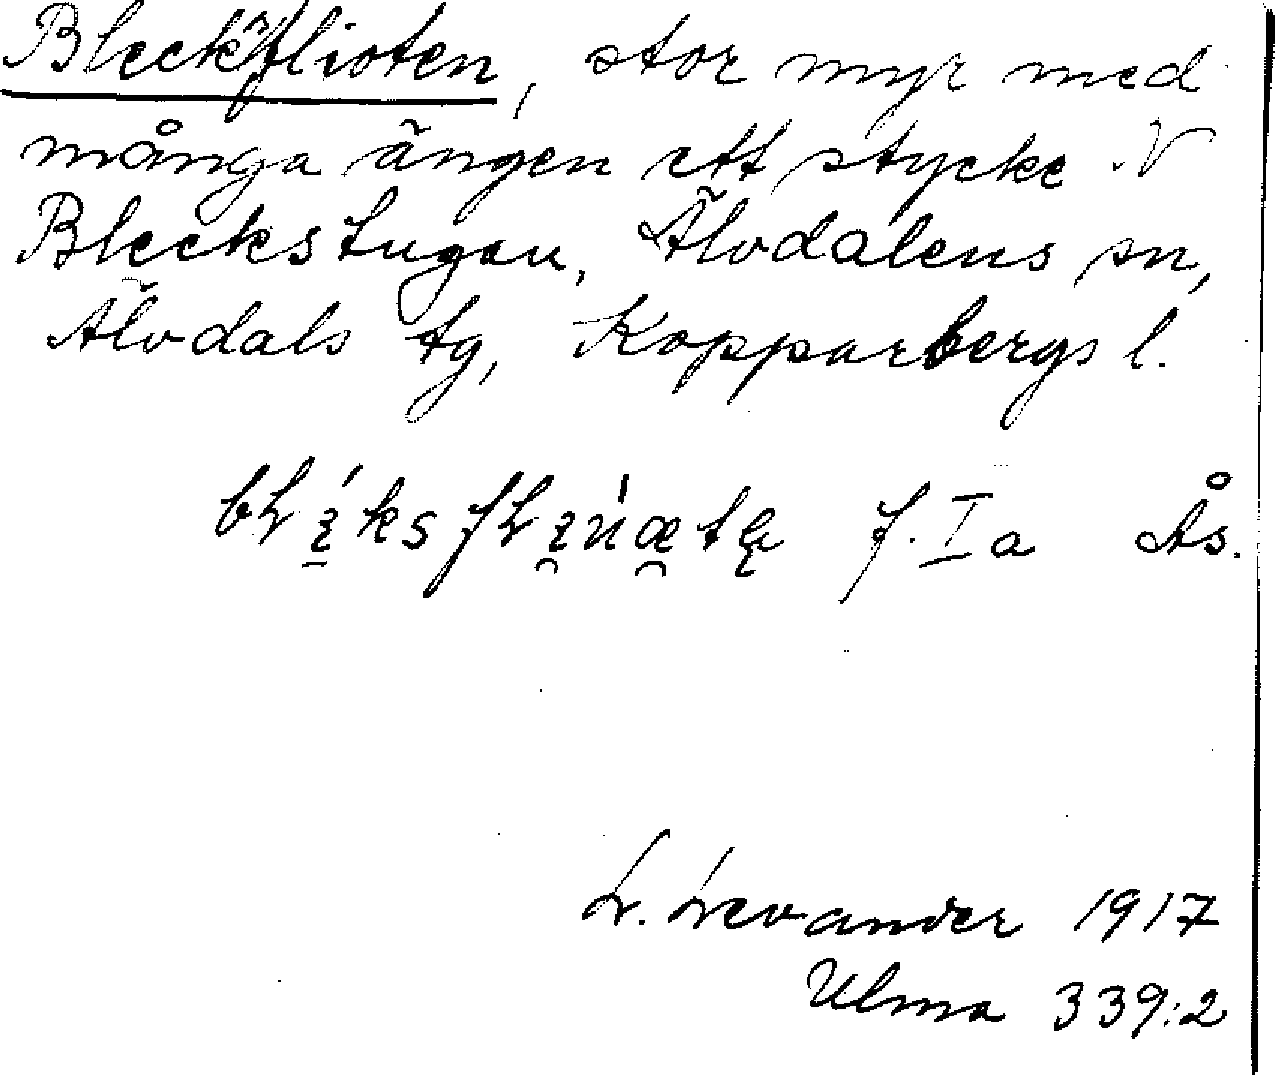 Bleck"flioten, stor myr med
många ängen ett stycke N
Bleckstugan, Älvdalens sn,
Älvdals tg, Kopparbergs l.
f. I a Ås.
L. Levander 1917
Ulma 339:2